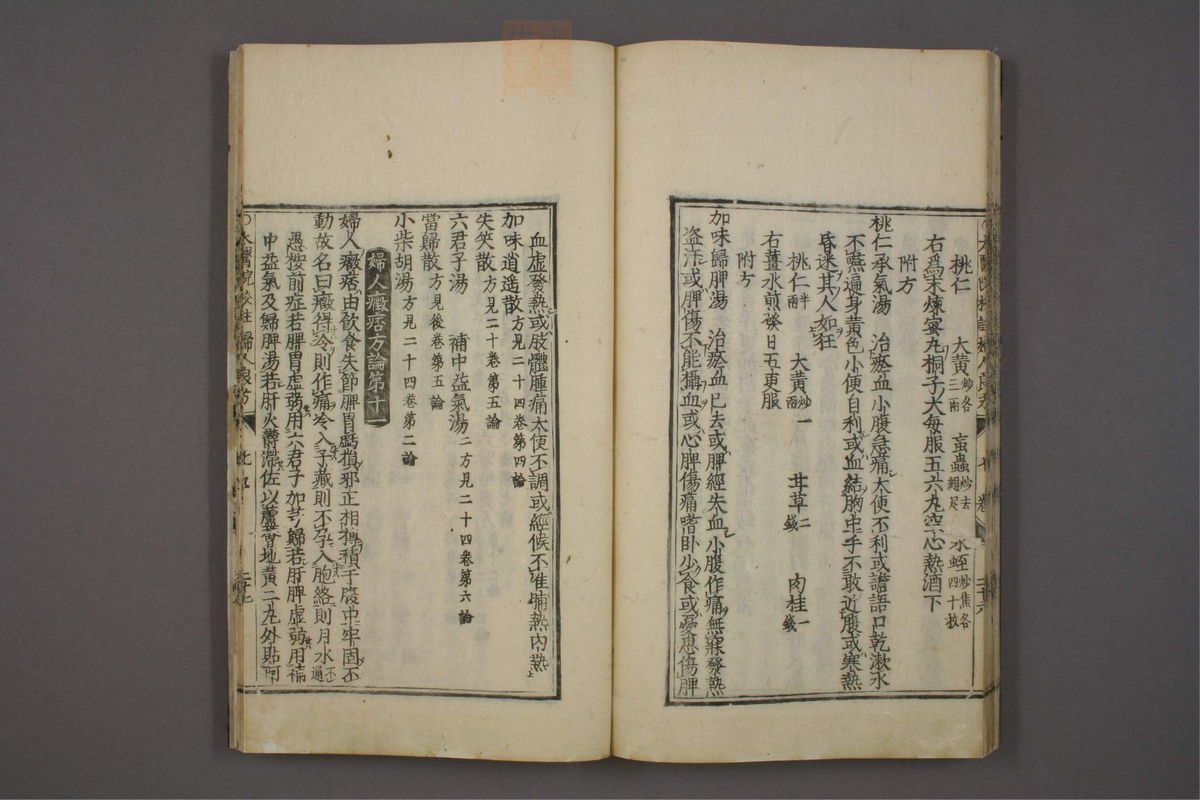 桃仁　大黃炒各三兩　䖟蟲炒去翅足　水蛭炒焦各四十枚
右爲末煉蜜丸桐子大每服五六丸空心熱酒下
附方
桃仁承氣湯　治瘀血小腹急痛大便不利或譫語口乾漱水
不嚥遍身黃色小便自利或血結胸中手不敢近腹或寒熱
昏迷其人如狂
桃仁半兩　大黃炒一兩　甘草二錢　肉桂一錢
右薑水煎發日五更服
附方
加味歸脾湯　治瘀血已去或脾經失血小腹作痛無寐發熱
盜汗或脾傷不能攝血或心脾傷痛嗜卧少食或憂思傷脾
血虛發熱或肢體腫痛大便不調或經候不准晡熱內熱
加味逍遙散方見二十四卷第四論
失笑散方見二十卷第五論
六君子湯　補中益氣湯二方見二十四卷第六論
當歸散方見後卷第五論
小柴胡湯方見二十四卷第二論
婦人癥痞方論第十一
婦人癥痞由飲食失節脾胃虧損邪正相搏積于腹中牢固不
動故名曰癥得冷則作痛冷入子藏則不孕入胞絡則月水不通
愚按前症若脾胃虛弱用六君子加芎歸若肝脾虛弱用補
中益氣及歸脾湯若肝火鬱滯佐以蘆薈地黃二丸外貼阿
太醫院校註　婦人良方　七卷